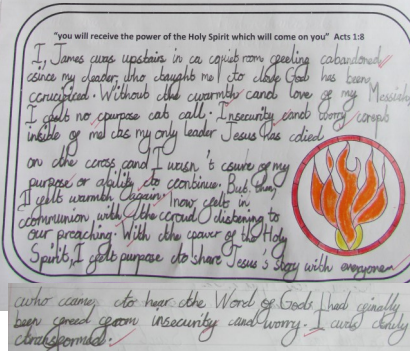 "you will receive the power of the Holy Spirit which will come on you" Acts 1:8
I, James was upstairs in a quiet room feeling abandoned
since my leader, who taught me to love God has been
crucified. Without the warmth and love of my Messiah,
I felt no purpose at all. Insecurity and worry crept
inside of me as my only leader Jesus has died
on the cross and I wasn't sure of my
purpose or ability to continue. But then,
I felt warmth again. I now felt in
communion with the crowd listening to
our preaching. With the power of the Holy
Spirit, I felt purpose to share Jesus's story with everyone
who came, to hear the Word of God. I had finally
been freed from insecurity and worry. I was truly
transformed.